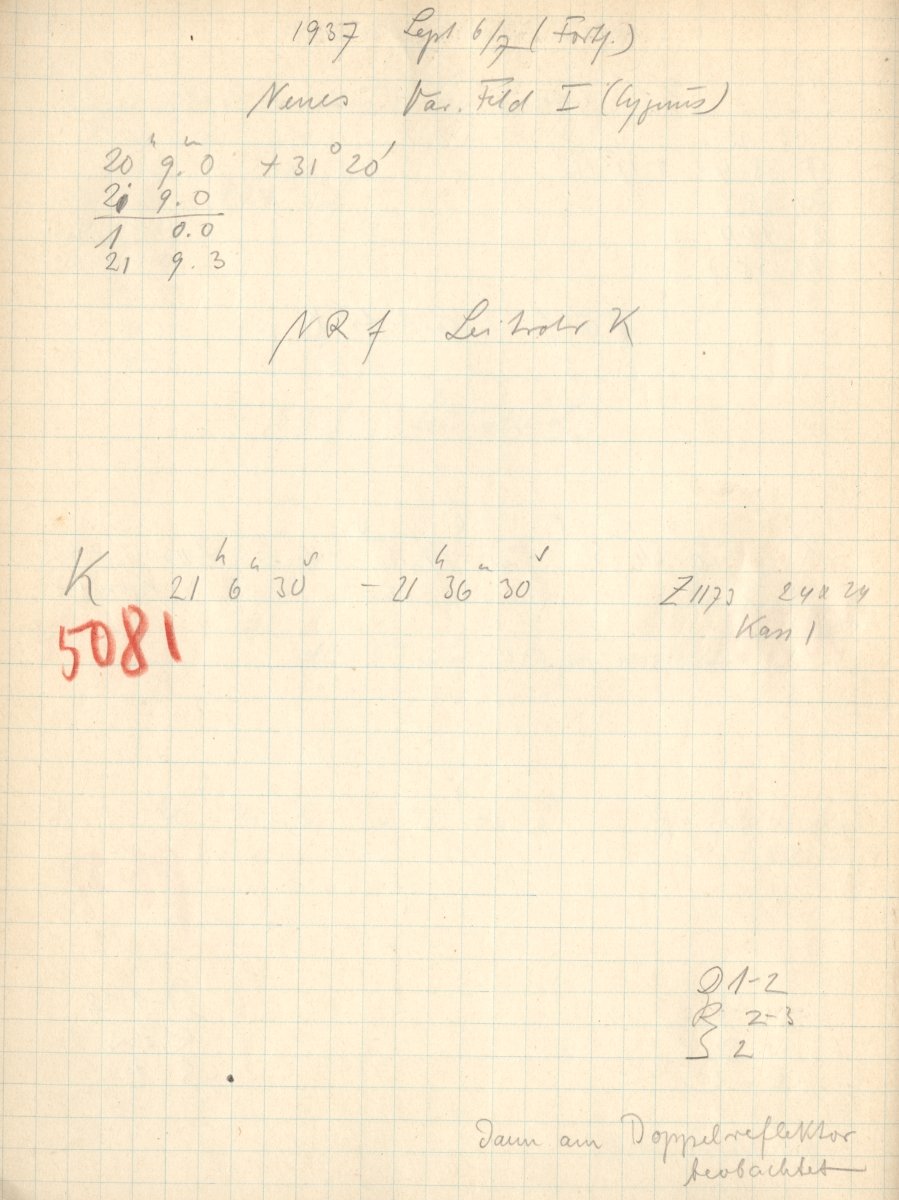 1937 Sept 6/7 (Forts.)
Neues Var. Feld I (Cygnus)
20ʰ 9.ᵐ0 + 31° 20′
21 9.0
1 0.0
21 9.3
NR f Leitrohr K
K 21ʰ 6ᵐ 30ˢ – 21ʰ 36ᵐ 30ˢ Z 1173 24 x 24
5081 Kass 1
D 1-2
R 2-3
S 2
Dann am Doppelreflektor
beobachtet